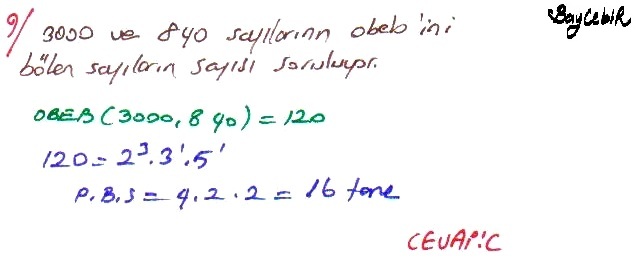 9/ 3000 ve 840 sayılarının obeb'ini
BayCebiR
bölen sayıların sayısı soruluyor.
OBEB(3000,840)=120
120=2³.3¹.5¹
P.B.S=4.2.2=16 tane
CEVAP:C